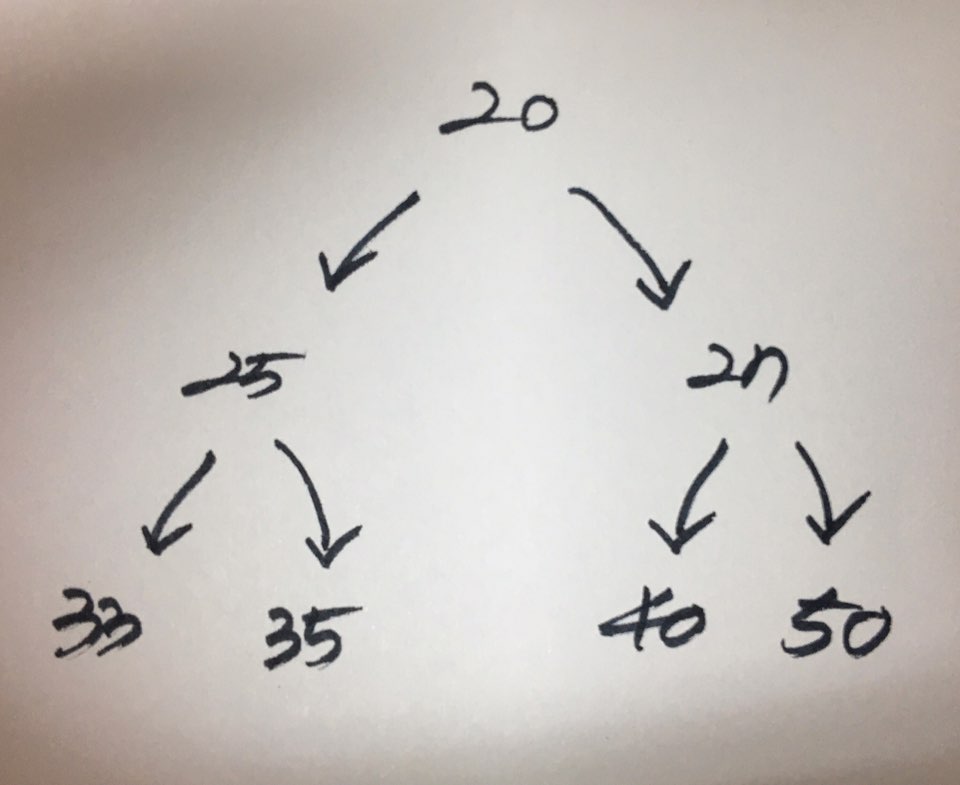 20
25 27
33 35 40 50